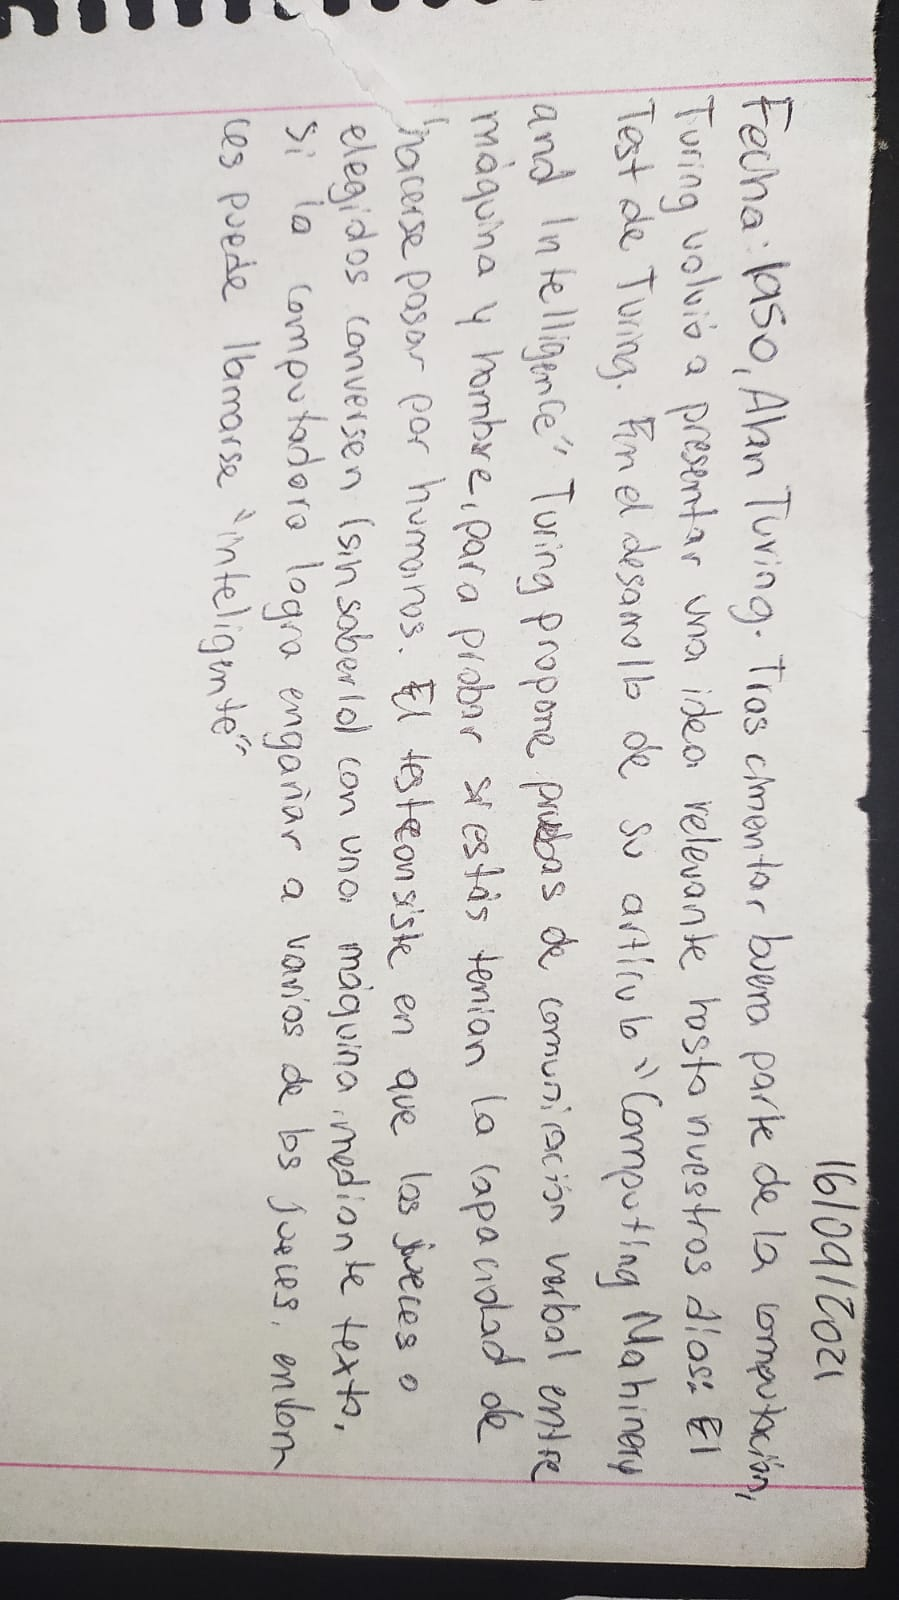 16/09/2021
Fecha: 1950, Alan Turing. Tras cimentar buena parte de la computación,
Turing volvió a presentar una idea relevante hasta nuestros días: El
Test de Turing. En el desarrollo de su artículo "Computing Mahinery
and Intelligence" Turing propone pruebas de comunicación verbal entre
máquina y hombre, para probar si estás tenian la capacidad de
hacerse pasar por humanos. El test consiste en que los jueces o
elegidos conversen (sin saberlo) con una máquina mediante texto,
si la computadora logra engañar a varios de los jueces, enton
ces puede llamarse "inteligente"